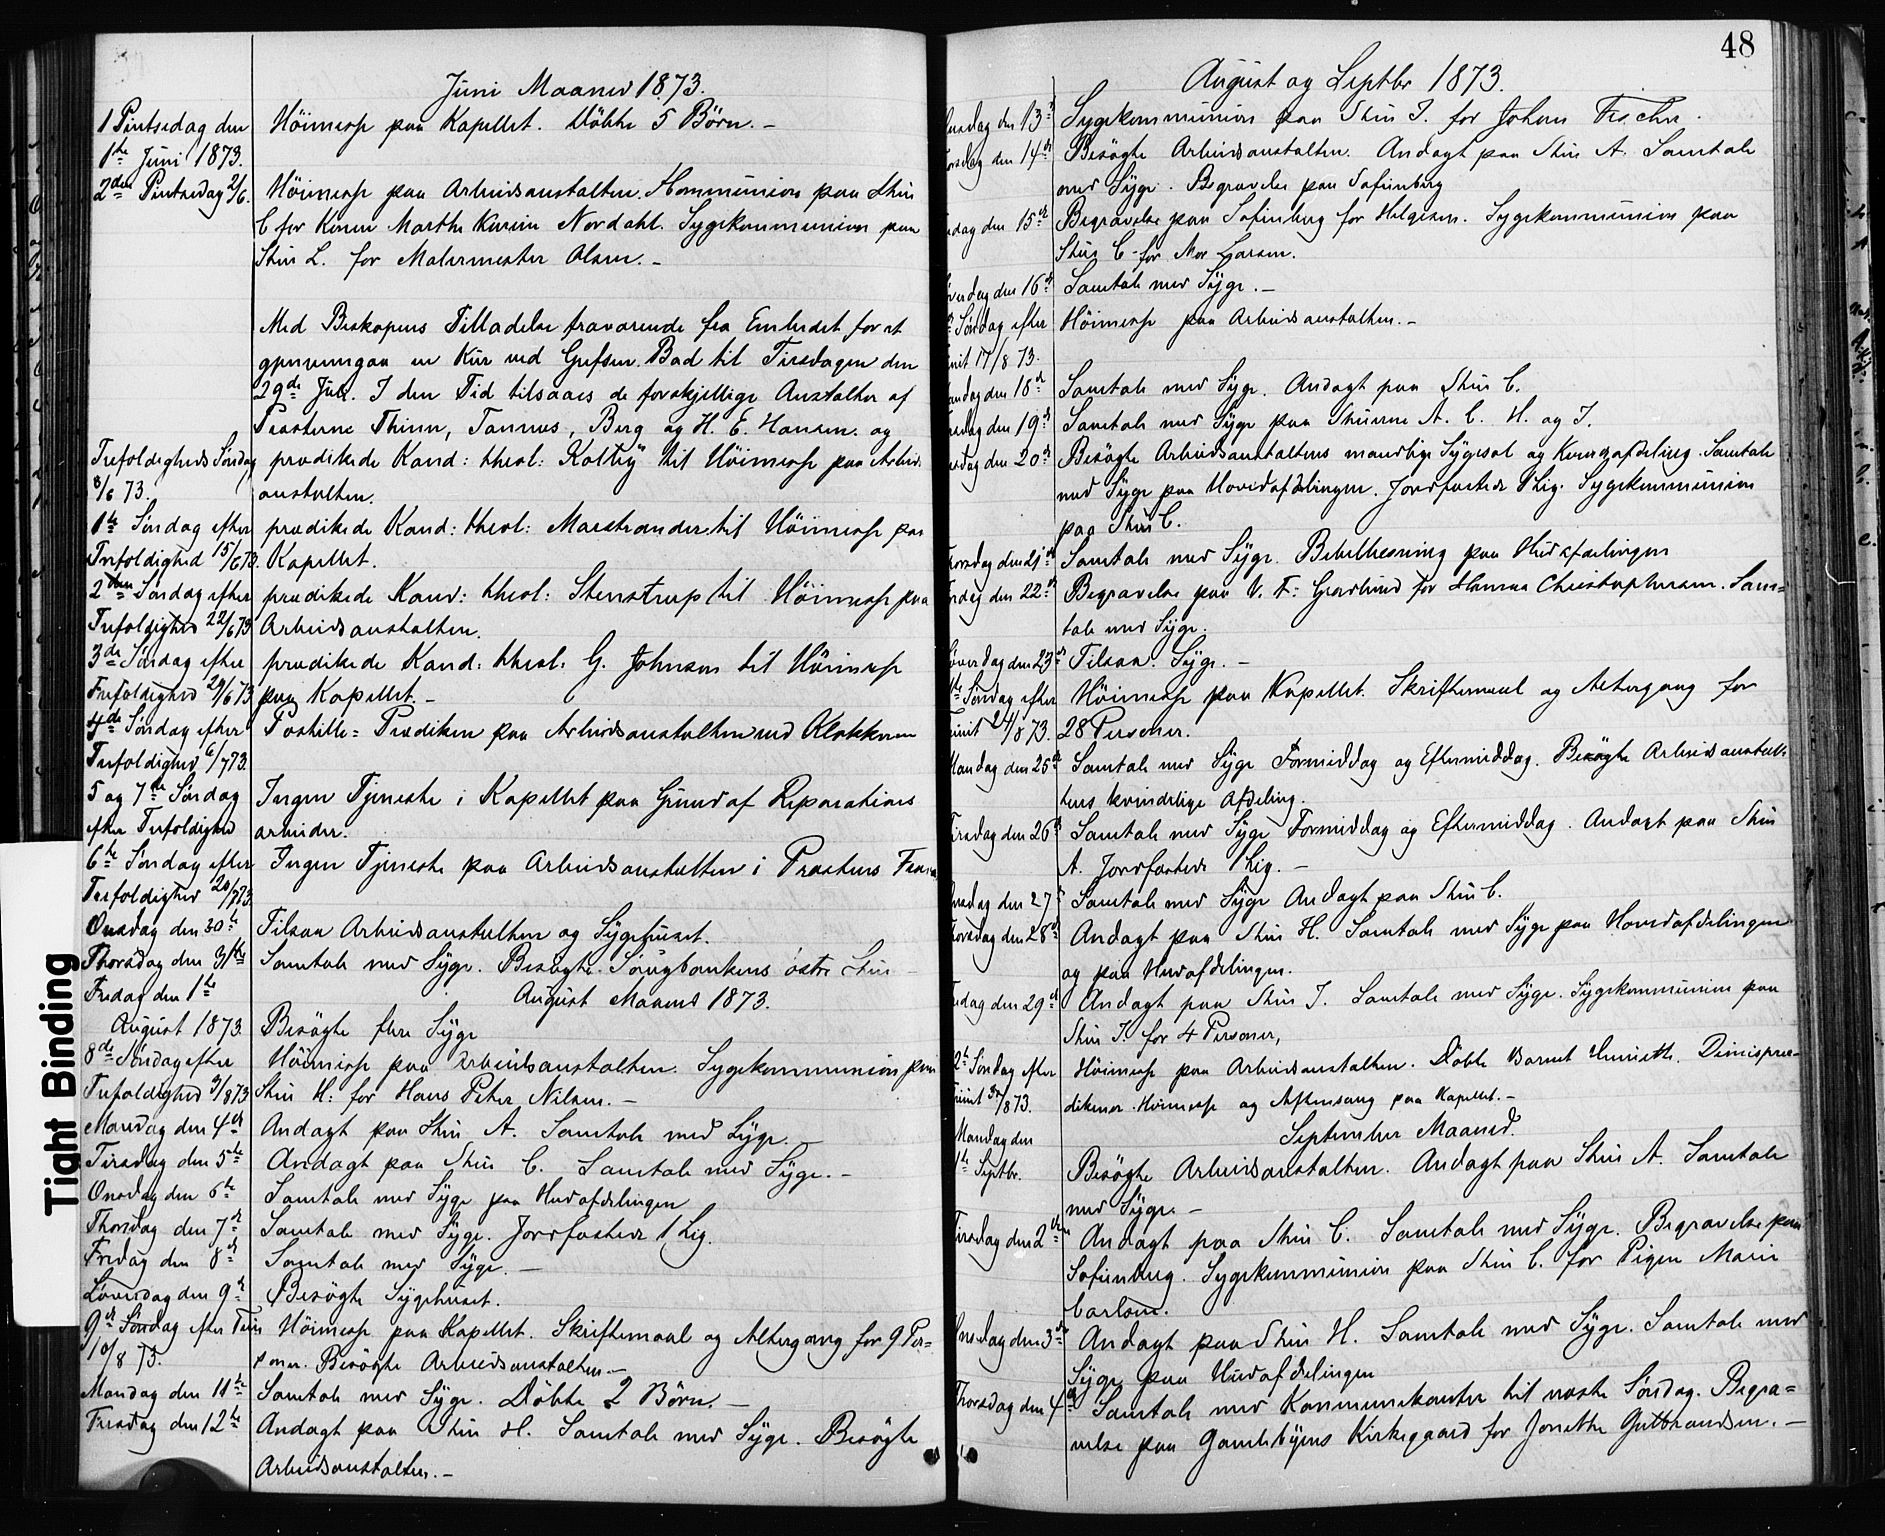 Juni Maaned 1873.
1 Pintsedag den Höimesse paa Kapellet. Döbte 5 Börn. –
1ste Juni 1873.
2den Pintsedag 2/6. Höimesse paa Arbeidsanstalten. Kommunion paa Stuen
C for Konen Marthe Karine Nordahl. Sygekommunion paa
Stuen L. for Malermester Olsen. –
Med Biskopens Tilladelse fraværende fra Embedet for at
gjennemgaa en Kur ved Grefsen Bad til Tirsdagen den
29de Juli. I den Tid tilsaaes de forskjellige Anstalter af
Præsterne Thinn, Tannus, Berg og H. E. Hansen. og
Trefoldigheds Søndag prædikede Kand: theol: Koltby til Höimesse paa Arbeids
8/6 73. anstalten.
1ste Søndag efter prædikede Kand: theol: Marstrander til Höimesse paa
Trefoldighed 15/6 73. Kapellet.
2den Søndag efter prædikede Kand: theol: Stenstrup til Höimesse paa
Trefoldighed 22/6 73 Arbeidsanstalten.
3de Søndag efter prædikede Kand: theol: G. Johnson til Höimesse
Trefoldighed 29/6 73 paa Kapellet. –
4de Søndag efter Postille-Prædiken paa Arbeidsanstalten ved Klokkeren
Trefoldighed 6/7 73.
5 og 7de Søndag Ingen Tjeneste i Kapellet paa Grund af Reparations
efter Trefoldighed arbeider.
6te Søndag efter Ingen Tjeneste paa Arbeidsanstalten i Præstens Fravær
Trefoldighed 20/7 73.
Onsdag den 30te Tilsaa Arbeidsanstalten og Sygehuset.
Thorsdag den 31te Samtale med Syge. Besøgte Sørngbankens østre Stue –
Fredag den 1ste August Maaned 1873.
August 1873. Besøgte flere Syge
8de Søndag efter Höimesse paa Arbeidsanstalten. Sygekommunion paa
Trefoldighed 3/8 73 Stuen H. for Hans Peter Nilsen. –
Mandag den 4de Andagt paa Stuen A. Samtale med Syge. –
Tirsdag den 5te Andagt paa Stuen C. Samtale med Syge. –
Onsdag den 6te Samtale med Syge paa Hudafdelingen
Thorsdag den 7de Samtale med Syge. Jordfæstede 1 Lig.
Fredag den 8de Samtale med Syge. –
Løverdag den 9de Besögte Sygehuset.
9de Søndag efter Trin Höimesse paa Kapellet. Skriftemaal og Altergang for 9 Per-
10/8 73. soner. Besögte Arbeidsanstalten. –
Mandag den 11te Samtale med Syge. Döbte 2 Börn. –
Tirsdag den 12te Andagt paa Stuen H. Samtale med Syge. Besögte
Arbeidsanstalten. –
48
August og Septbr 1873.
Onsdag den 13de Sygekommunion paa Stuen I. for Johan Fischer.
Torsdag den 14de Besögte Arbeidsanstalten. Andagt paa Stuen A. Samtale
med Syge. Begravelse paa Sofienberg
Fredag den 15de Begravelse paa Sofienberg for Helgesen. Sygekommunion paa
Stuen C for Mor Larsen.
Løverdag den 16de Samtale med Syge. –
Søndag efter Höimesse paa Arbeidsanstalten. –
Trinit 17/8 73.
Mandag den 18de Samtale med Syge. Andagt paa Stuen C.
Tirsdag den 19de Samtale med Syge paa Stuerne A. C. H. og I.
Onsdag den 20de Besögte Arbeidsanstaltens mandlige Sygesal og Kvindeafdeling. Samtale
med Syge paa Hovedafdelingen. Jordfæstede 1 Lig. Sygekommunion
paa Stuen C.
Thorsdag den 21de Samtale med Syge. Bibellæsning paa Hudafdelingen
Fredag den 22de Begravelse paa V. F: Gravlund for Hanna Christophersen. Sam-
tale med Syge.
Løverdag den 23de Tilsaa Syge. –
Søndag efter Höimesse paa Kapellet. Skriftemaal og Altergang for
Trinit 24/8 73. 28 Personer.
Mandag den 25de Samtale med Syge Formiddag og Eftermiddag. Besögte Arbeidsanstal-
tens kvindelige Afdeling.
Tirsdag den 26de Samtale med Syge Formiddag og Eftermiddag. Andagt paa Stuen
A. Jordfæstede 1 Lig. –
Onsdag den 27de Samtale med Syge Andagt paa Stuen C.
Torsdag den 28de Andagt paa Stuen H. Samtale med Syge paa Hovedafdelingen
og paa Hudafdelingen.
Fredag den 29de Andagt paa Stuen I. Samtale med Syge. Sygekommunion paa
Stuen I. for 4 Personer,
12te Søndag efter Höimesse paa Arbeidsanstalten. Döbte Barnet Henriette. Dimispræ-
Trinit 31/8 73. dikener Höimesse og Aftensang paa Kapellet. –
Mandag den September Maaned.
1ste Septbr. Besögte Arbeidsanstalten. Andagt paa Stuen A. Samtale
med Syge. –
Tirsdag den 2den Andagt paa Stuen C. Samtale med Syge. Begravelse paa
Sofienberg. Sygekommunion paa Stuen C. for Pigen Marie
Carlsen.
Onsdag den 3die Andagt paa Stuen H. Samtale med Syge. Samtale med
Syge paa Hudafdelingen
Thorsdag den 4de Samtale med Kommunikanter til næste Søndag. Begra-
velse paa Gamlebyens Kirkegaard for Jonette Gulbrandsen. –
Tight Binding